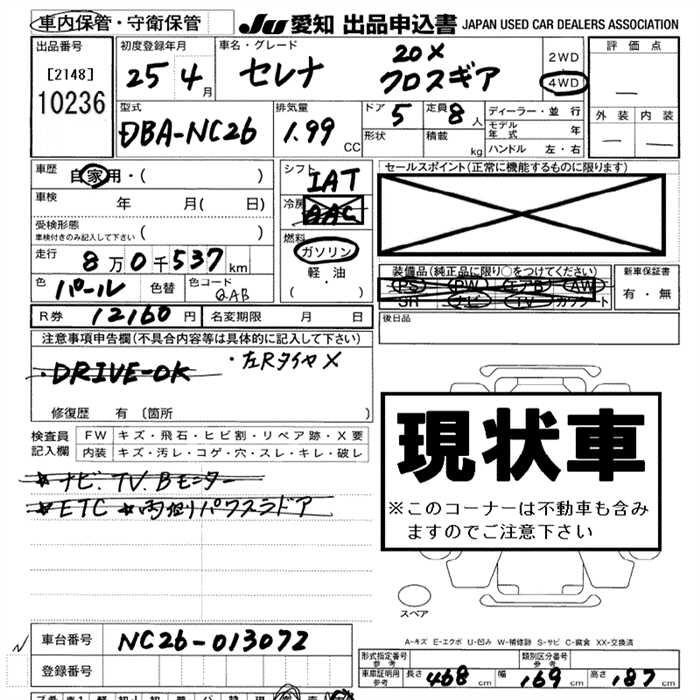 車内保管・守衛保管 JU 愛知 出品申込書 JAPAN USED CAR DEALERS ASSOCIATION
出品番号 初度登録年月 車名・グレード 評価点
[2148] 25 4月 セレナ 20X 2WD
10236 クロスギア 4WD
型式 排気量 ドア 定員 ディーラー・並行 外装 内装
DBA-NC26 1.99 CC 5 8人 モデル年式 年
形状 積載 kg ハンドル 左・右
車歴 自家用・( ) シフト IAT セールスポイント(正常に機能するものに限ります)
車検 年 月( 日) 冷房 AAC
受検形態 車検付きのみ記入して下さい ( ) 燃料 ガソリン
走行 8万0千537km 軽・油 装備品(純正品に限り○をつけてください) 新車保証書
色 パール 色替 色コード QAB ( ) PS PW エアB AW 有・無
SR ナビ TV カワシート
R券 12160円 名変期限 月 日 後日品
注意事項申告欄(不具合内容等は具体的に記入して下さい)
・左RタイヤX
・DRIVE-OK
修復歴 有 (箇所 )
現状車
※このコーナーは不動車も含み
ますのでご注意下さい
検査員記入欄 FW キズ・飛石・ヒビ割・リペア跡・X要
内装 キズ・汚レ・コゲ・穴・スレ・キレ・破レ
★ナビ.TV.Bモニター
★ETC ★両側パワスラドア
スペア
A-キズ E-エクボ U-凹み W-補修跡 S-サビ C-腐食 XX-交換済
車台番号 NC26-013072
登録番号
形式指定番号 参考 類別区分番号 参考
車庫証明用 参考 長さ 468cm 幅 169cm 高さ 187cm